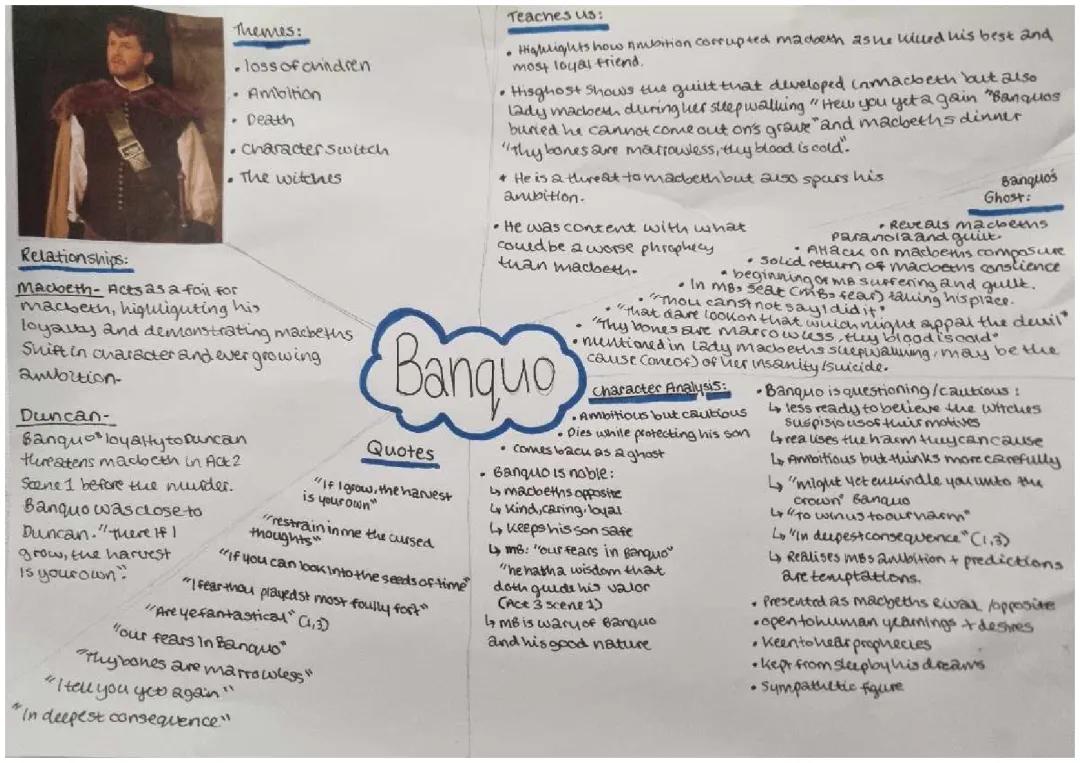 Themes:
• loss of children
• Ambition
• Death
• character switch
• The witches
Teaches us:
• Highlights how Ambition corrupted macbeth as he killed his best and
most loyal friend.
• His ghost shows the guilt that developed in macbeth but also
lady macbeth during her sleepwalking "I tell you yet again "Banquos
buried he cannot come out on's grave" and macbeths dinner
"Thy bones are marrowless, thy blood is cold".
• He is a threat to macbeth but also spurs his
ambition.
• He was content with what
could be a worse phrophecy
than macbeth.
Banquo's
Ghost:
• Reveals macbeths
paranoia and guilt.
• Attack on macbeths composure
• Solid return of macbeths conscience
• beginning of MB suffering and guilt.
• In MBs seat (MBs fear) taking his place.
• "Thou canst not say I did it"
• "That dare look on that which might appal the devil"
• "Thy bones are marrowless, thy blood is cold"
• mentioned in lady macbeths sleepwalking, may be the
cause (one of) of her insanity/suicide.
Relationships:
Macbeth- Acts as a foil for
macbeth, highlighting his
loyalty and demonstrating macbeths
Shift in character and ever growing
ambition.
Duncan-
Banquo's loyalty to Duncan
threatens macbeth in Act 2
Scene 1 before the murder.
Banquo was close to
Duncan. "There if I
grow, the harvest
is your own".
Banquo
Quotes
"If I grow, the harvest
is your own"
"restrain in me the cursed
thoughts"
"If you can look into the seeds of time"
"I fear thou played'st most foully for't"
"Are ye fantastical" (1,3)
"our fears in Banquo"
"Thy bones are marrowless"
"I tell you yet again"
"In deepest consequence"
Character Analysis:
• Ambitious but cautious
• Dies while protecting his son
• comes back as a ghost
• Banquo is noble:
↳ macbeths opposite
↳ Kind, caring, loyal
↳ Keeps his son safe
↳ MB: "our fears in Banquo"
"he hath a wisdom that
doth guide his valor
(Act 3 scene 1)
↳ MB is wary of Banquo
and his good nature
• Banquo is questioning/cautious:
↳ less ready to believe the witches
suspisious of their motives
↳ realises the harm they can cause
↳ Ambitious but thinks more carefully
↳ "might yet enkindle you unto the
crown" Banquo
↳ "To win us to our harm"
↳ "In deepest consequence" (1,3)
↳ Realises MBs ambition + predictions
are temptations.
• Presented as macbeths rival/opposite
• open to human yearnings + desires
• Keen to hear prophecies
• kept from sleep by his dreams
• Sympathetic figure